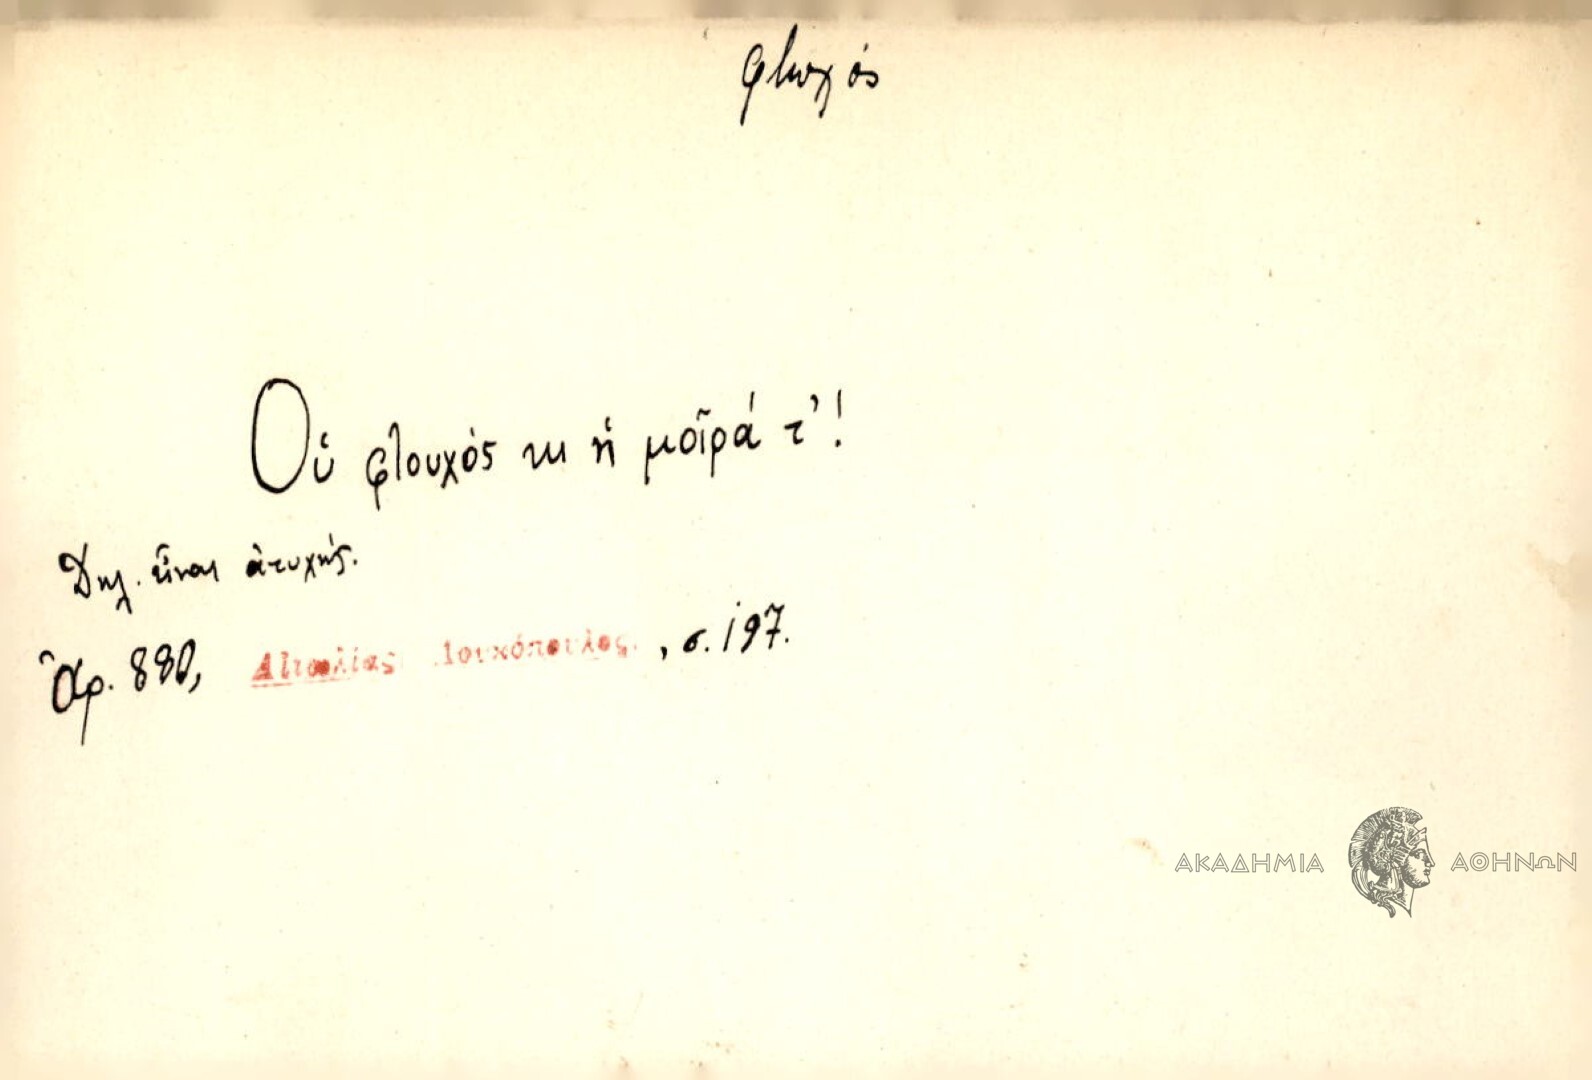 φτωχός
Οὑ φτουχός κι ἡ μοῖρά τ'!
Δηλ. εἶναι ἀτυχής.
Ἀρ. 880, Αἰτωλίας Λουκόπουλος, σ. 197.
ΑΚΑΔΗΜΙΑ ΑΘΗΝΩΝ